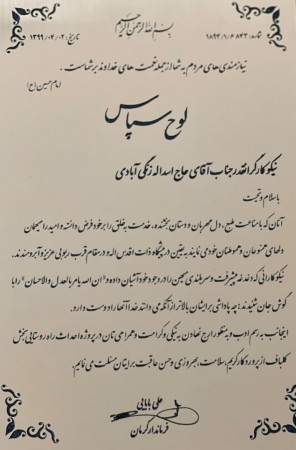 بسم الله الرحمن الرحیم
شماره: ۱۸۹۴/۱/۶۸۴۳
تاریخ: ۱۳۹۹/۰۴/۰۲
نیازمندی های مردم به شما از جمله نعمت های خداوند بر شماست.
امام حسین (ع)
لوح سپاس
نیکوکار گرانقدر جناب آقای حاج اسداله زنگی آبادی
با سلام و تحیت
آنان که با مناعت طبع، دل مهربان و دستان بخشنده، خدمت به خلق را بر خود فرض دانسته و امید را میهمان
دلهای همنوعان و هموطنان خود می نمایند به یقین در پیشگاه ذات اقدس اله و در مقام قرب ربوبی عزیز و آبرومندند.
نیکوکارانی که دغدغه پیشرفت و سربلندی میهن را در وجود خود آشیان داده و "ان الله یامر بالعدل والاحسان" را با
گوش جان شنیدند؛ چه پاداشی برایشان بالاتر از آنکه می دانند خدا آنها را دوست دارد.
اینجانب به رسم ادب و به منظور ارج نهادن به نیکی و کرامت و همراهی تان در پروژه احداث راه روستایی بخش
گلباف از پروردگار کریم، سلامت، بهروزی و حسن عاقبت برایتان مسئلت می نمایم.
علی بابایی
فرماندار کرمان